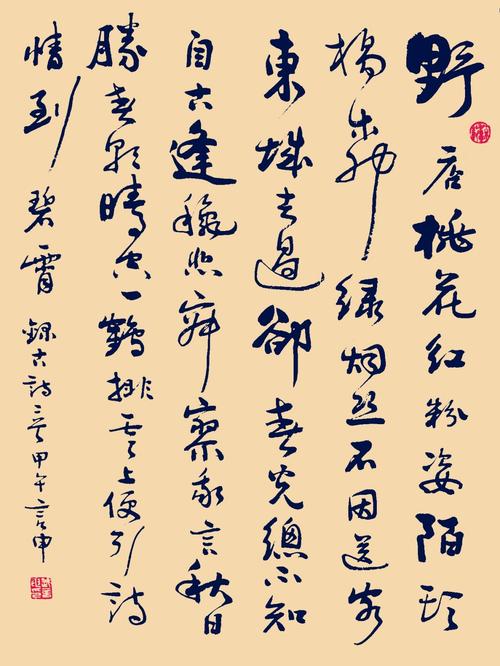 野店桃花红粉姿陌头
杨柳绿烟丝不因送客
東城去過卻春光總不知
自古逢穐悲寂寥我言秋日
勝春朝晴空一鶴排雲上便引詩
情到碧霄 録古詩二首甲午